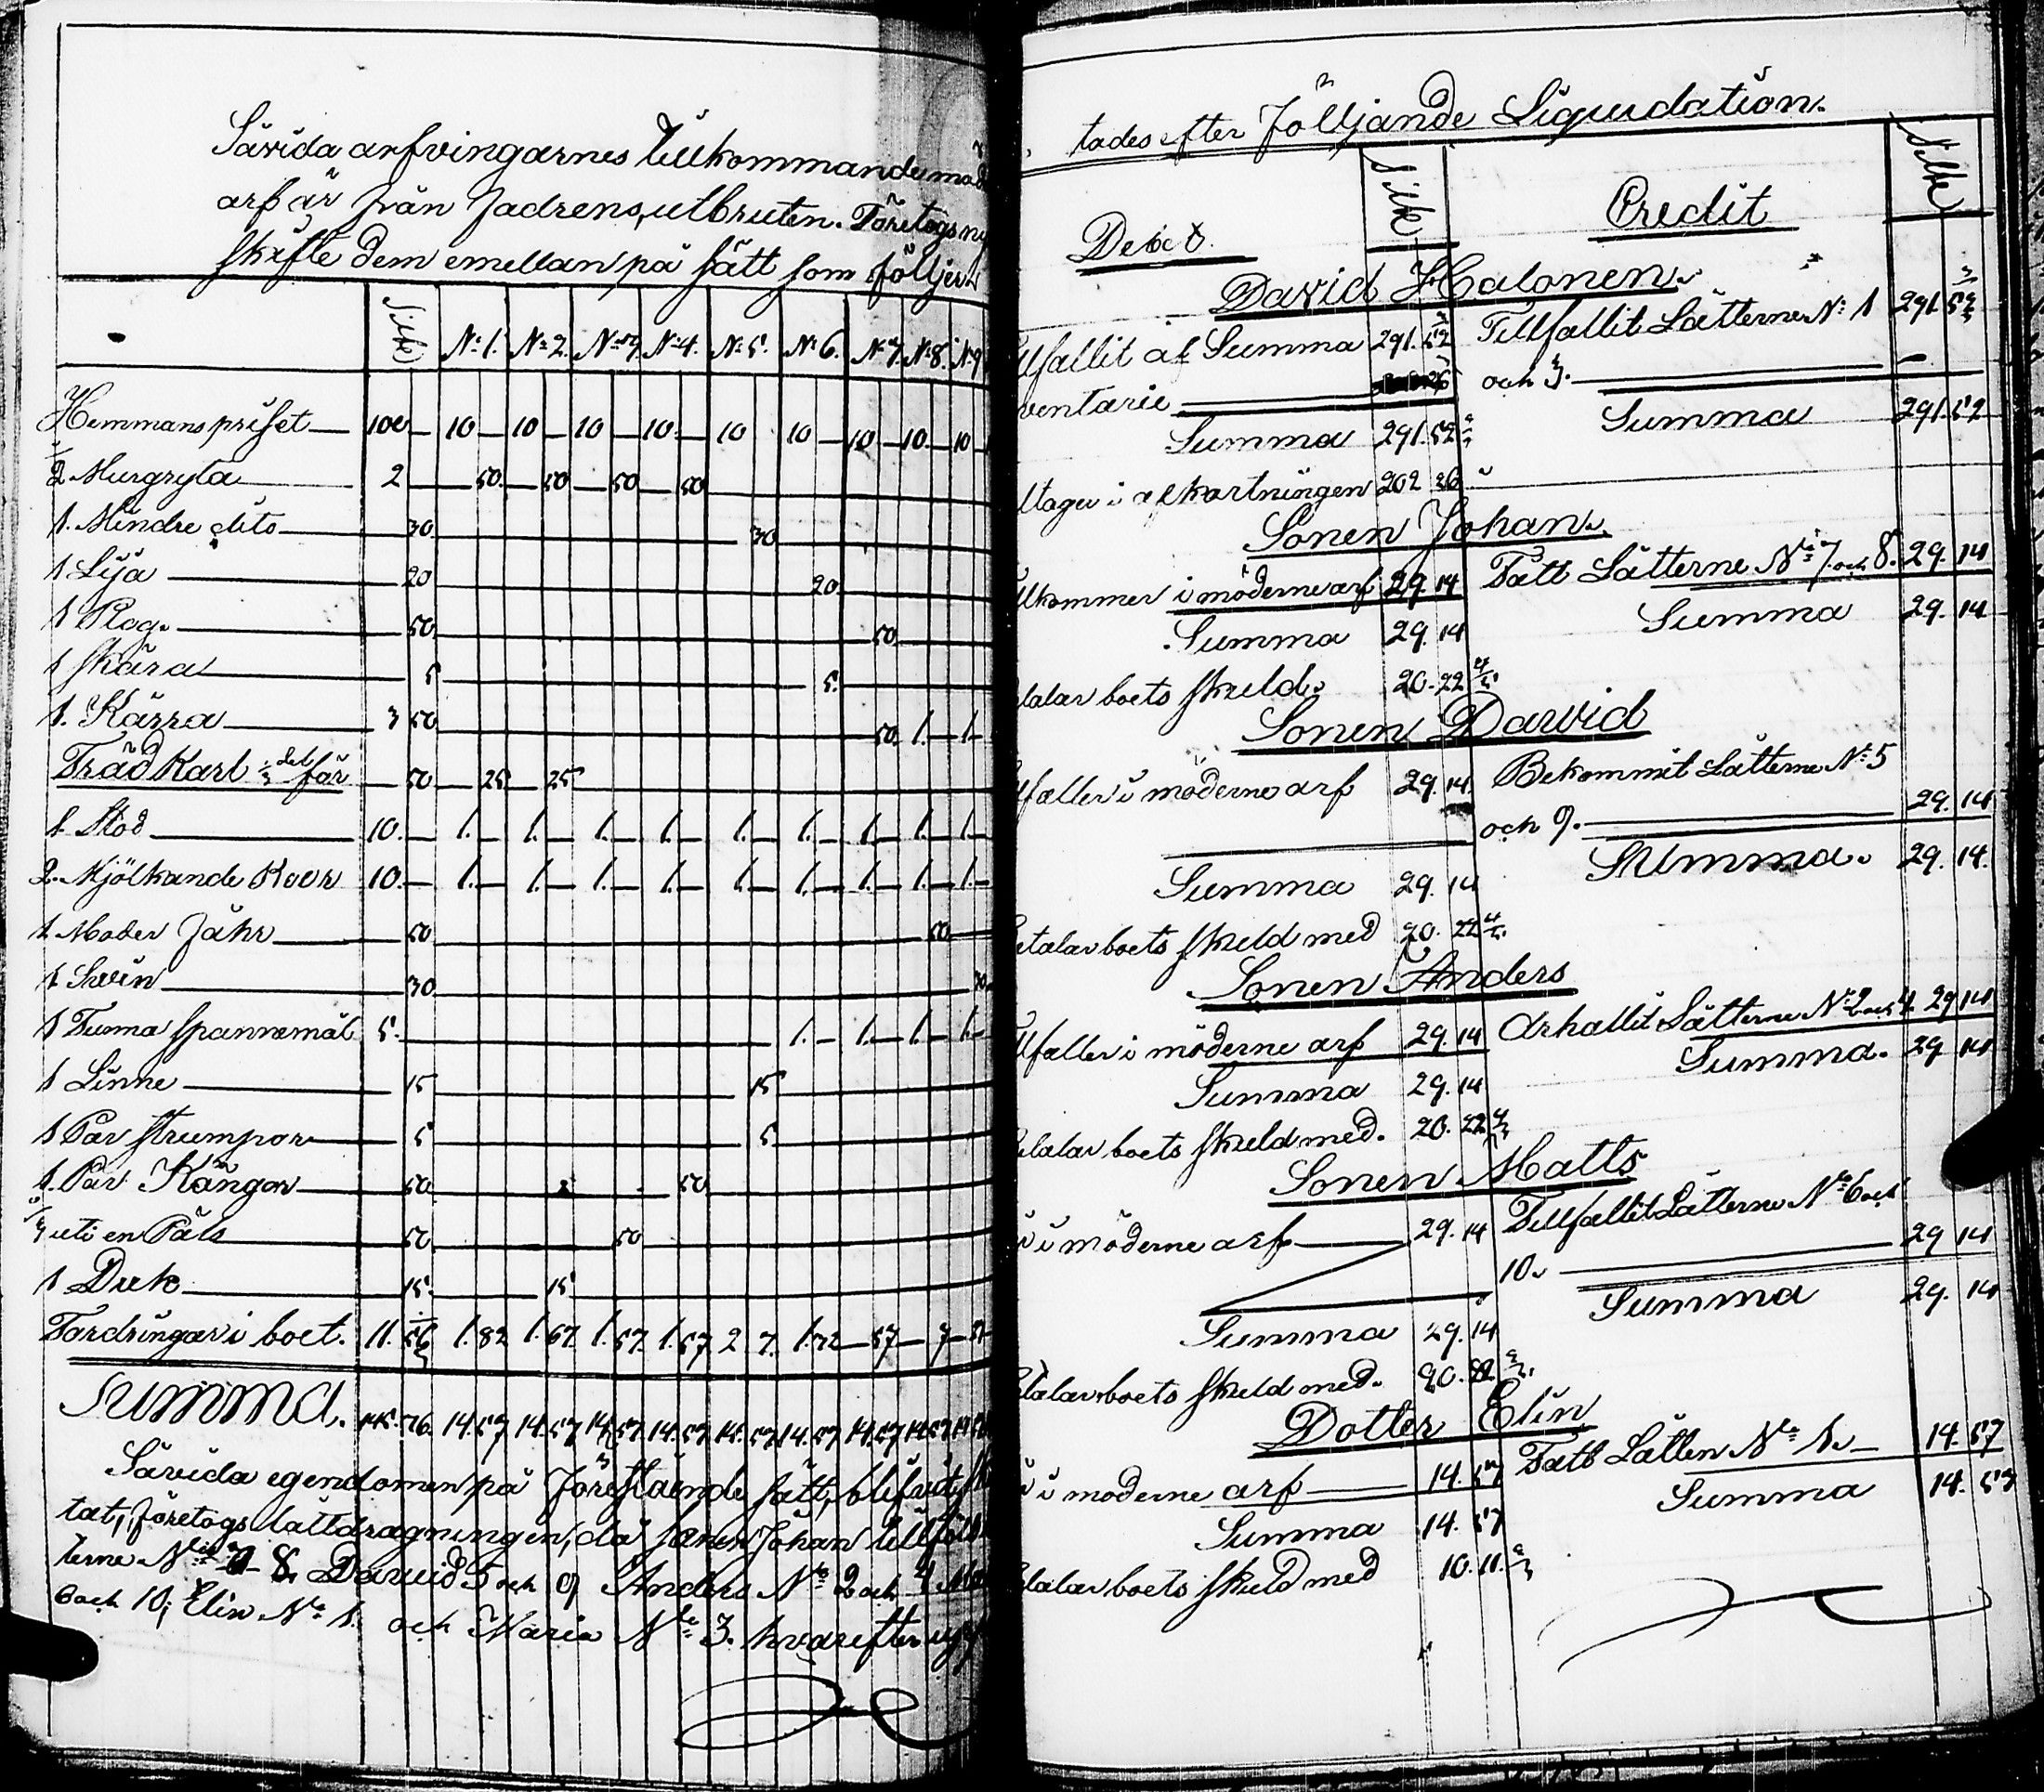 Såvida arfvingarnes tillkommande
arf är från fadrens utbruten. Företogs
skifte dem emellan på sätt som följer
Silfr N: 1. N: 2. N: 3 N: 4. N: 5. N: 6. N: 7. N: 8. N: 9
Hemmans priset 100 — 10 — 10 — 10 — 10 — 10 10 — 10 — 10 — 10
2 Murgryta 2 — 50 — 50 — 50 — 50
1. Mindre dito 30 30
1 Lija 20 20
1 Plog. 50 50
1 skära 5 5.
1. Kärra 3 50 50 1.— 1.—
50 25 25
1 Stod 10. — 1. — 1. — 1. — 1. — 1. — 1. — 1. — 1. — 1.—
2. Mjölkande Koor 10. — 1. — 1. — 1. — 1. — 1. — 1. — 1. — 1. — 1.—
1. Moder Fåhr 50 50
1 Swin 30 30
1 Tunna spannemål 5. 1. — 1. — 1. — 1.—
1 Linne 15 15
1 Par strumpor 5 5
1. Par Kängor 50 50
uti en Päls 50 50
1 Duk 15 15
Fordringar i boet. 11. 56 1. 82 1. 67. 1. 57. 1. 57 2 7. 1. 72 — 57 — 7
Summa. 145. 76. 14. 57 14. 57 14. 57. 14. 57 14. 57 14. 57 14. 57 14. 57
Såvida egendomen på föreståënde sätt, blifvit
tat, företogs lättdragningen, då sonen Johan tillföll
terne N: 7 8. David 5 och 9 Anders N: 2 och 4
6 och 10, Elin N: 1. och Maria N: 3. hvarefter
tades efter följande Liqvidation.
Debet. Silfr Credit Silfr
David Halonen.
llfallit af Summa 291. 52 Tillfallit Låtterne N: 1 291 52
ventarie och 3.
Summa 291. 52 Summa 291. 52
ltager i afkortningen 202 36
Sonen Johan.
llkommer i möderne arf 29. 14 Fått Lätterne N: 7. och 8. 29. 14
Summa 29. 14 Summa 29. 14
talar boets skuld. 20. 22 4/5
Sonen David
llfaller i möderne arf 29. 14. Bekommit Lätterne N: 5
och 9. 29. 14
Summa 29. 14 Summa. 29. 14.
etalar boets skuld med 20. 22 4/5.
Sonen Anders
llfaller i möderne arf 29. 14 Erhallit Lätterne N: 2 och 4 29 14
Summa 29. 14 Summa. 29 14
etalar boets skuld med. 20. 22 4/5
Sonen Matts
i möderne arf 29. 14 Tillfallit Lätterne N: 6 och
10. 29 14
Summa 29. 14 Summa 29. 14
etalar boets skuld med. 20. 22
Dotter Elin
i möderne arf 14. 57 Fått Lätten N: 1. 14. 57
Summa 14. 57 Summa 14. 57
etalar boets skuld med 10. 11.